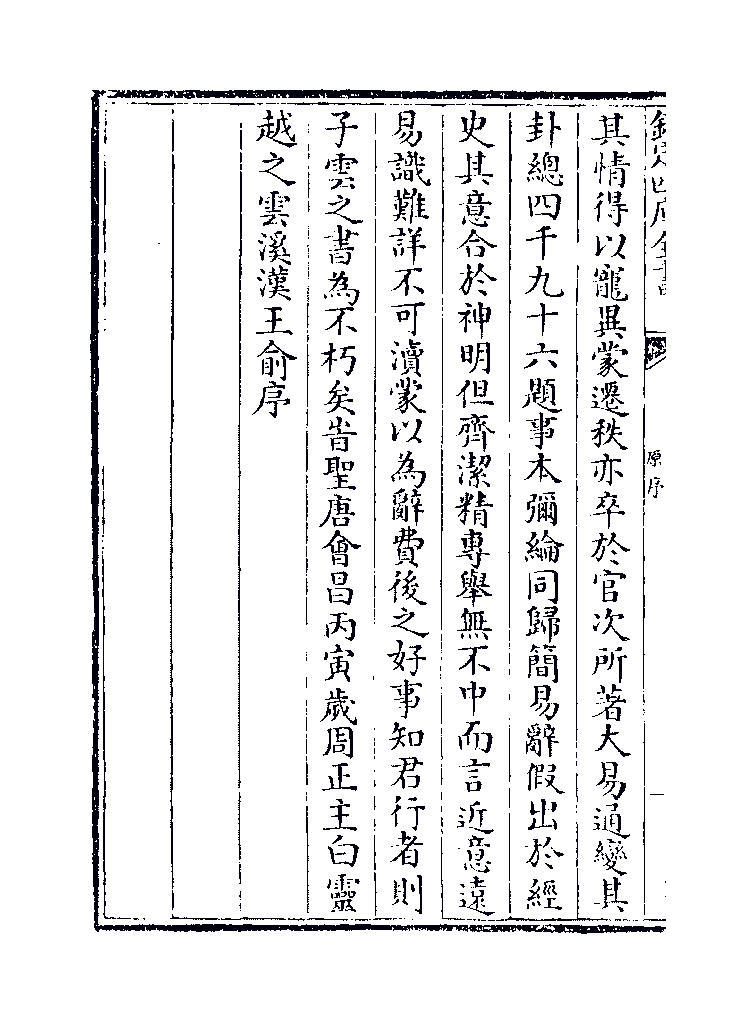 欽定四庫全書
原序
其情得以寵異蒙遷秩亦卒於官次所著大易通變其
卦總四千九十六題事本彌綸同歸簡易辭假出於經
史其意合於神明但齊潔精專舉無不中而言近意遠
易識難詳不可瀆蒙以為辭費後之好事知君行者則
子雲之書為不朽矣旹聖唐會昌丙寅歲周正主白靈
越之雲溪漢王俞序